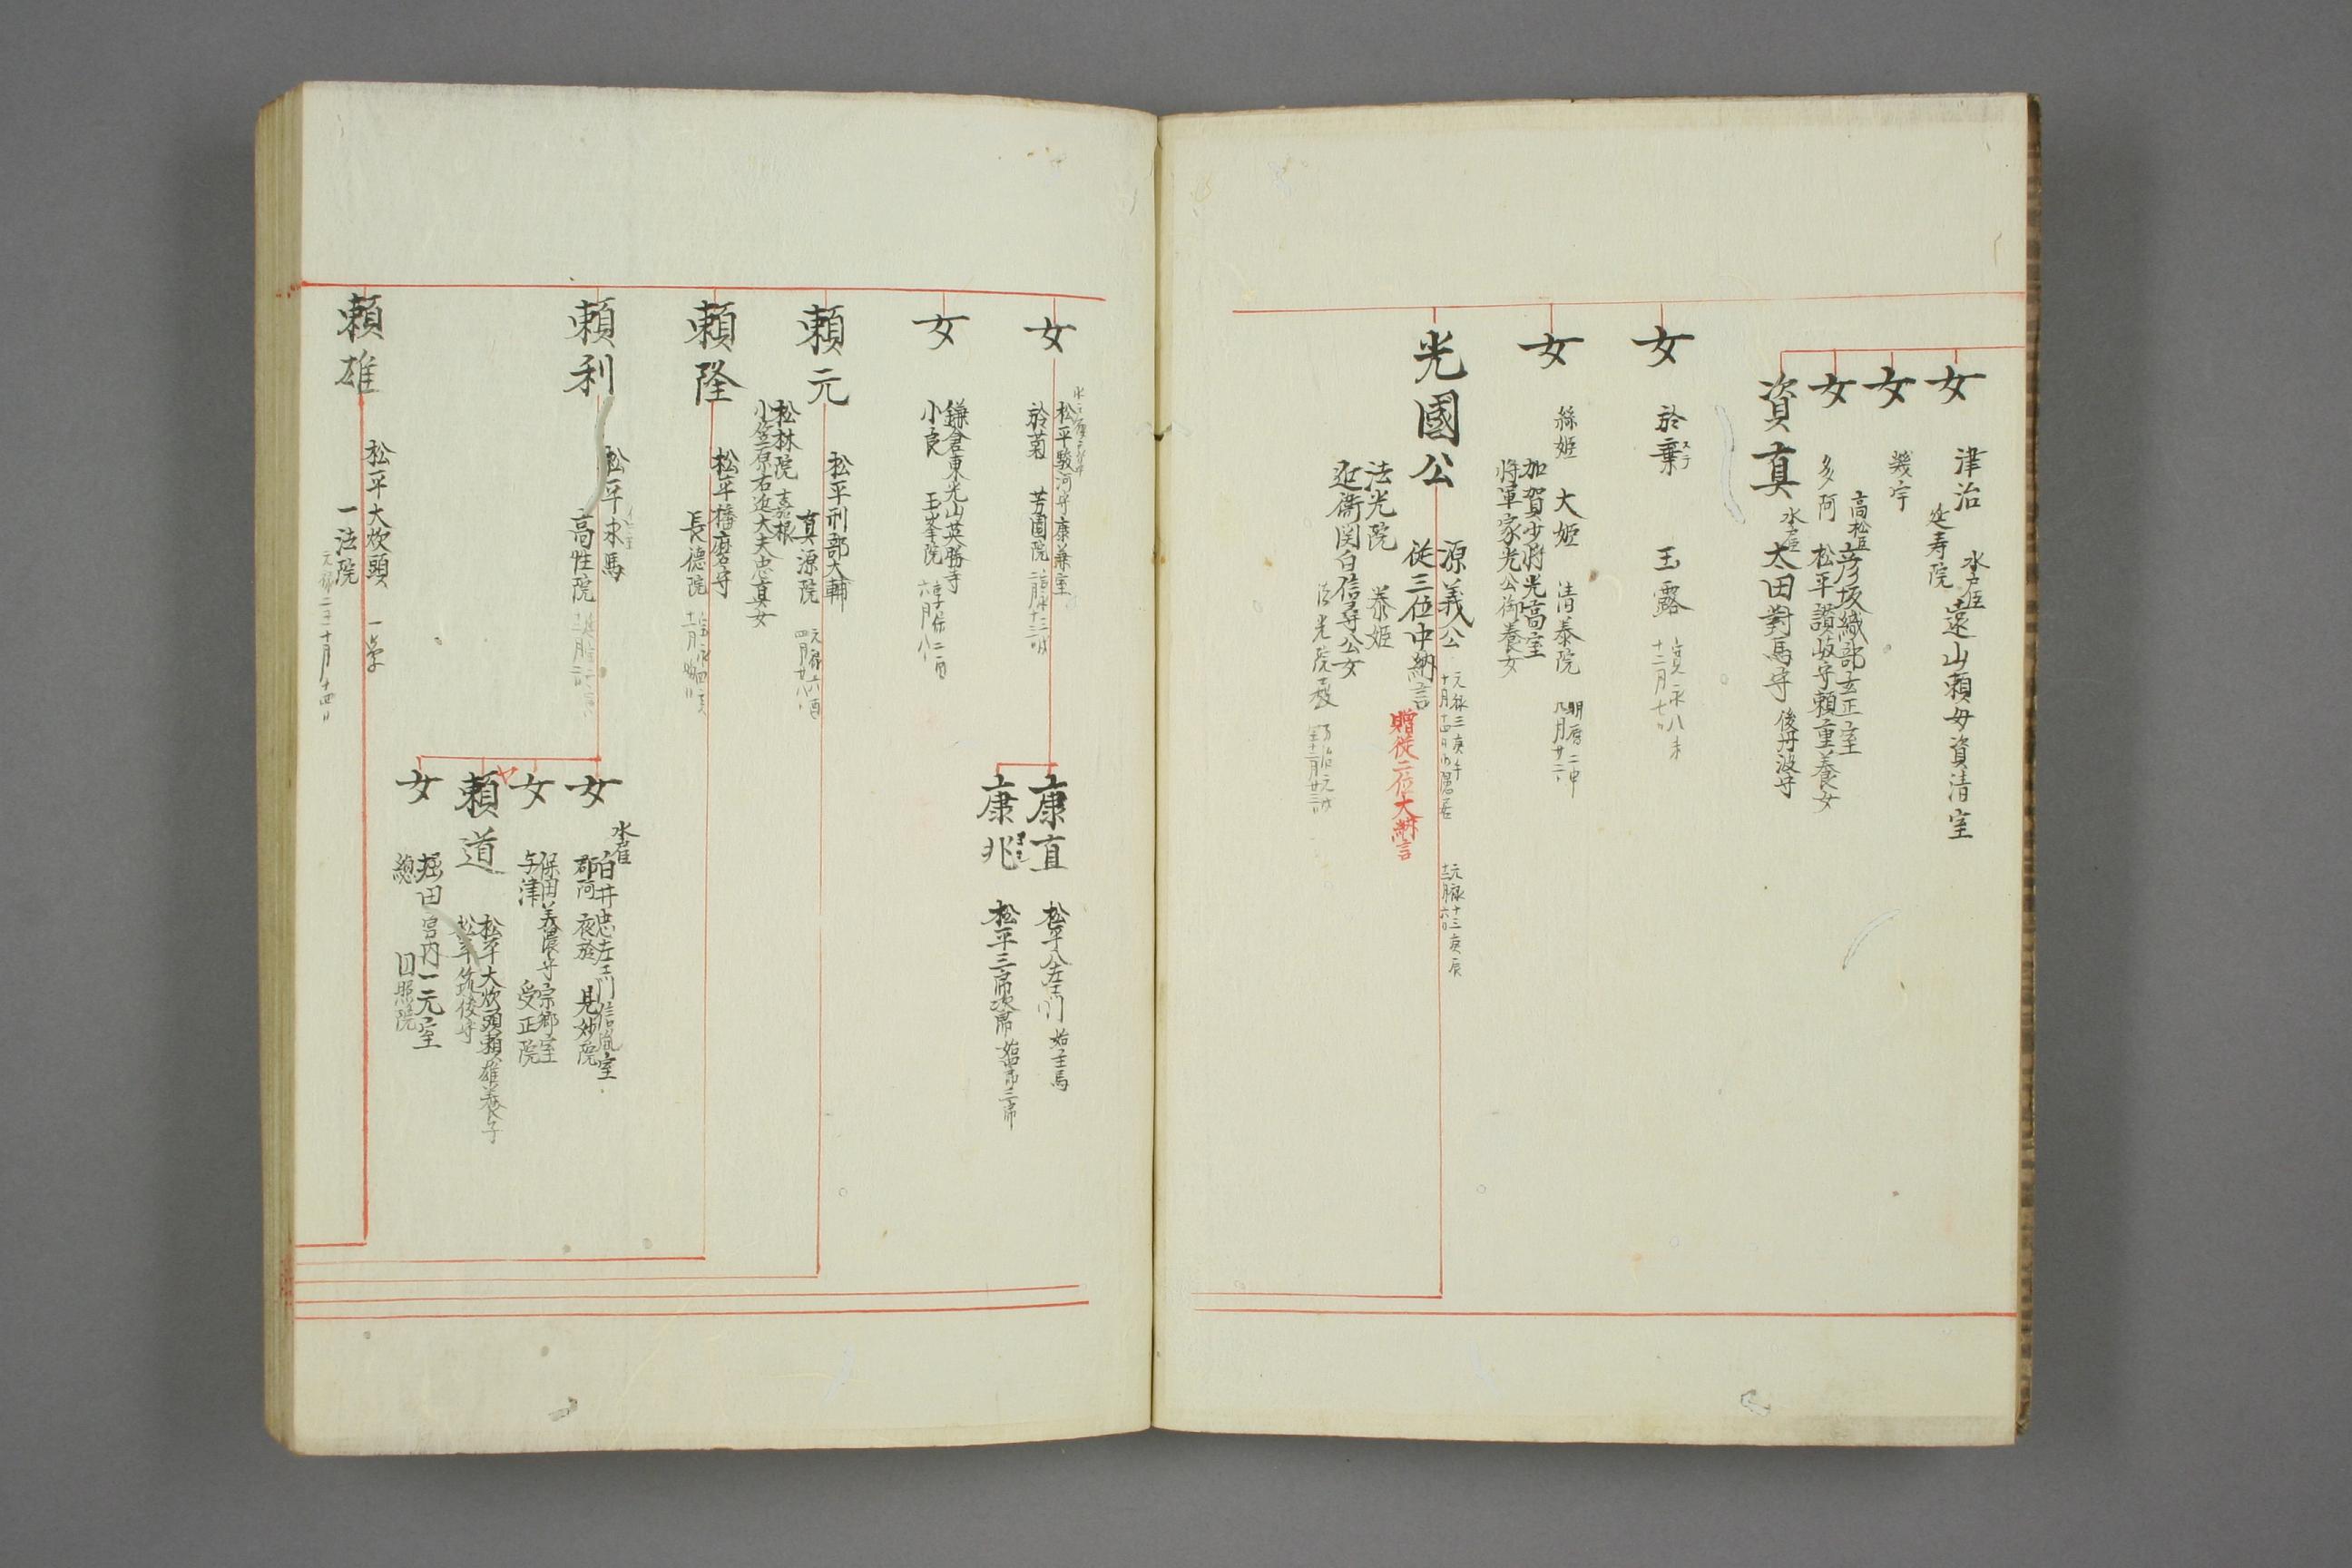 女
津治
水戸臣
遠山頼母資清室
延寿院
女
幾宇
女
高松臣
彦坂織部玄正室
多阿
松平讃岐守頼重養女
資真
水戸臣
太田對馬守
後丹波守
女
於棄
ステ
玉露
十二月七日
女
絲姫
大姫
清泰院
明暦二申
九月廿二日
加賀少将光高室
将軍家光公御養女
光國公
源義公
元禄三庚午
元禄十三庚辰
十二月六日
従三位中納言
贈従二位大納言
法光院
泰姫
近衛関白信尋公女
法光院
万治元戌
女
松平駿河守康兼室
於菊
芳園院
康直
松平八左衛門
始主馬
康兆
松平三郎次郎
女
鎌倉東光山英勝寺
小良
玉峯院
享保二酉
頼元
松平刑部大輔
真源院
元禄六酉
四月廿八日
松林院
嘉根
小笠原右近大夫忠真女
頼隆
松平播磨守
長徳院
宝永四亥
頼利
松平求馬
高性院
女
水戸臣
白井忠左衛門信胤室
那阿
夜於
見妙院
女
保田美濃守宗郷室
与津
受正院
頼道
松平大炊頭頼雄養子
松平筑後守
女
堀田宮内一元室
總
円照院
頼雄
松平大炊頭
一学
一法院
十月十四日